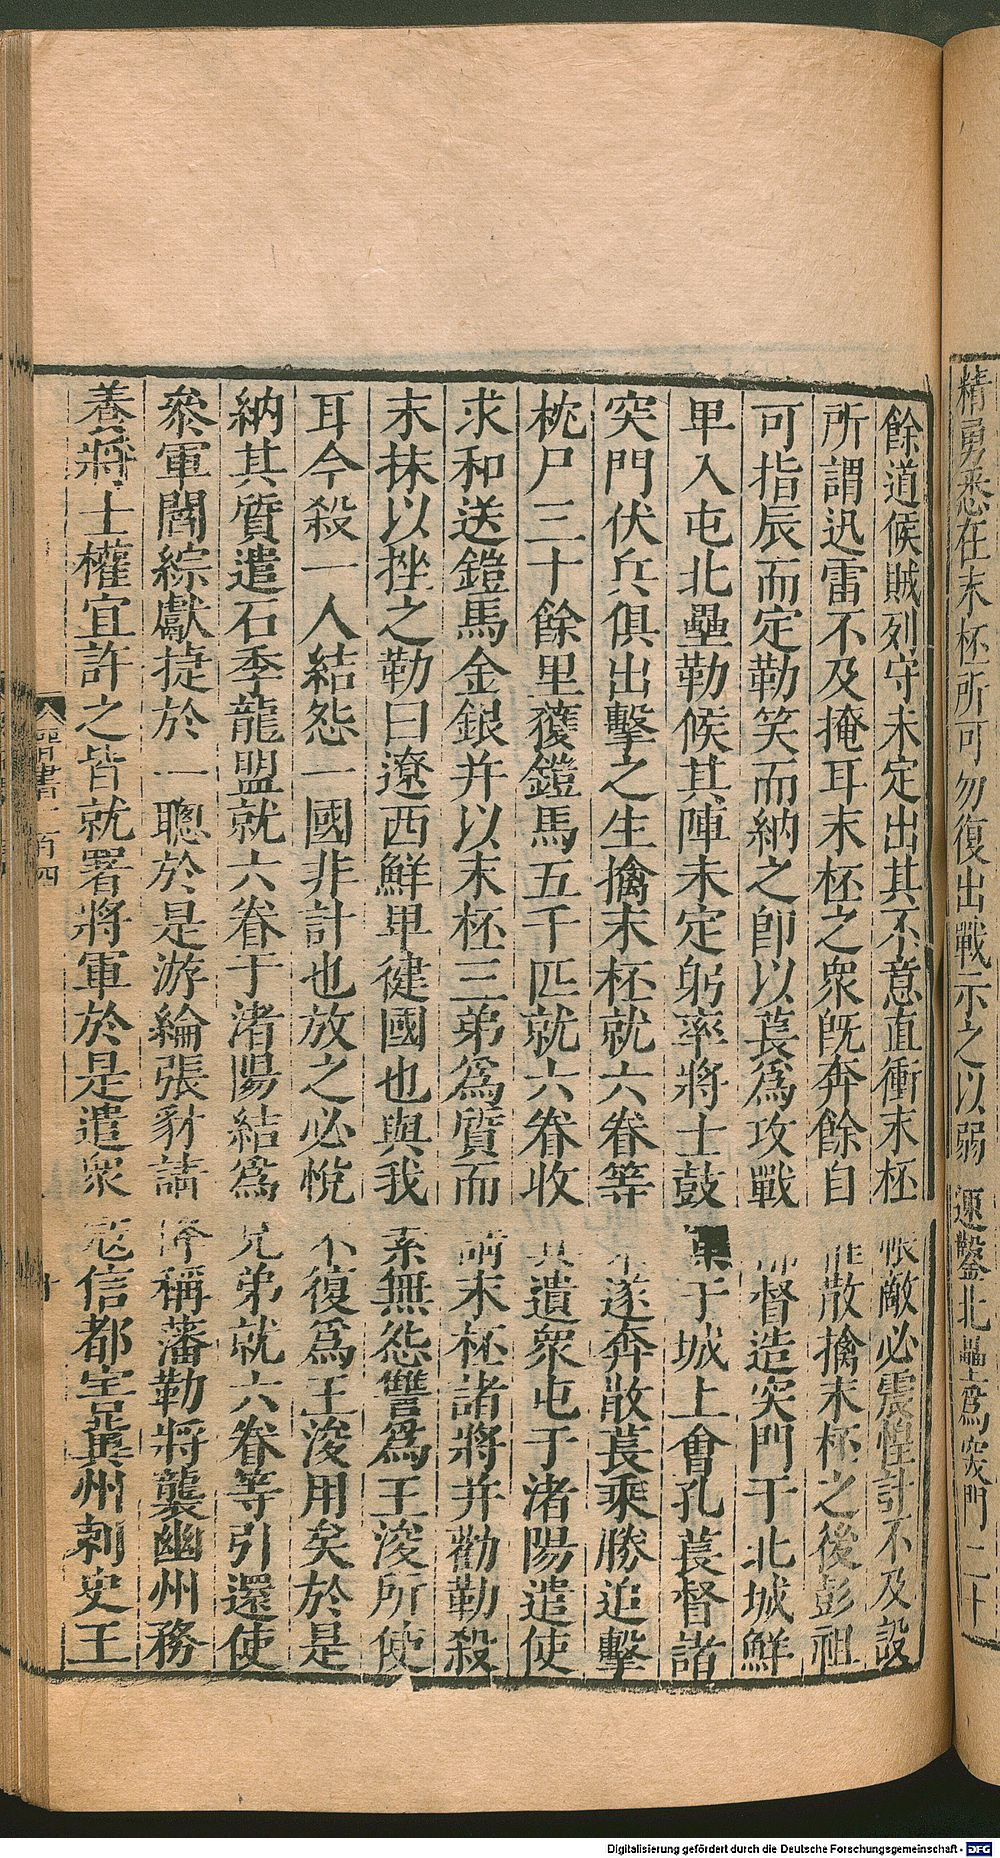 精勇悉在末柸所可勿復出戰示之以弱速鑿北壘爲突門二十
餘道候賊列守未定出其不意直衝末柸帳敵必震惶計不及設
所謂迅雷不及掩耳末柸之衆旣奔餘自散擒末柸之後彭祖
可指辰而定勒笑而納之卽以萇爲攻戰督造突門于北城鮮
卑入屯北壘勒候其陣未定躬率將士鼓于城上會孔萇督諸
突門伏兵俱出擊之生擒末柸就六眷等遂奔散萇乘勝追擊
枕尸三十餘里獲鎧馬五千匹就六眷收其遺衆屯于渚陽遣使
求和送鎧馬金銀并以末柸三弟爲質而請末柸諸將并勸勒殺
末抹以挫之勒曰遼西鮮卑健國也與我素無怨讐爲王浚所使
耳今殺一人結怨一國非計也放之必悅不復爲王浚用矣於是
納其質遣石季龍盟就六眷于渚陽結爲兄弟就六眷等引還使
叅軍閻綜獻捷於一聰於是游綸張豺請降稱藩勒將襲幽州務
養將士權宜許之皆就署將軍於是遣衆寇信都害冀州刺史王
晉書一百四
十
Digitalisierung gefördert durch die Deutsche Forschungsgemeinschaft - DFG